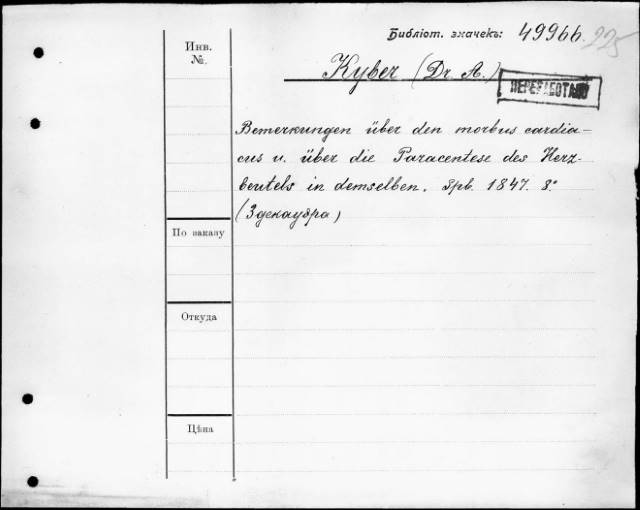 Библіот. значекъ: 49966. 225
Инв. №.
Kyber (Dr. A.)
ПЕРЕРАБОТАНО
Bemerkungen über den morbus cardia-
cus u. über die Paracentese des Herz-
beutels in demselben. Spb. 1847. 8.°
(Здекаудра)
По заказу
Откуда
Цѣна